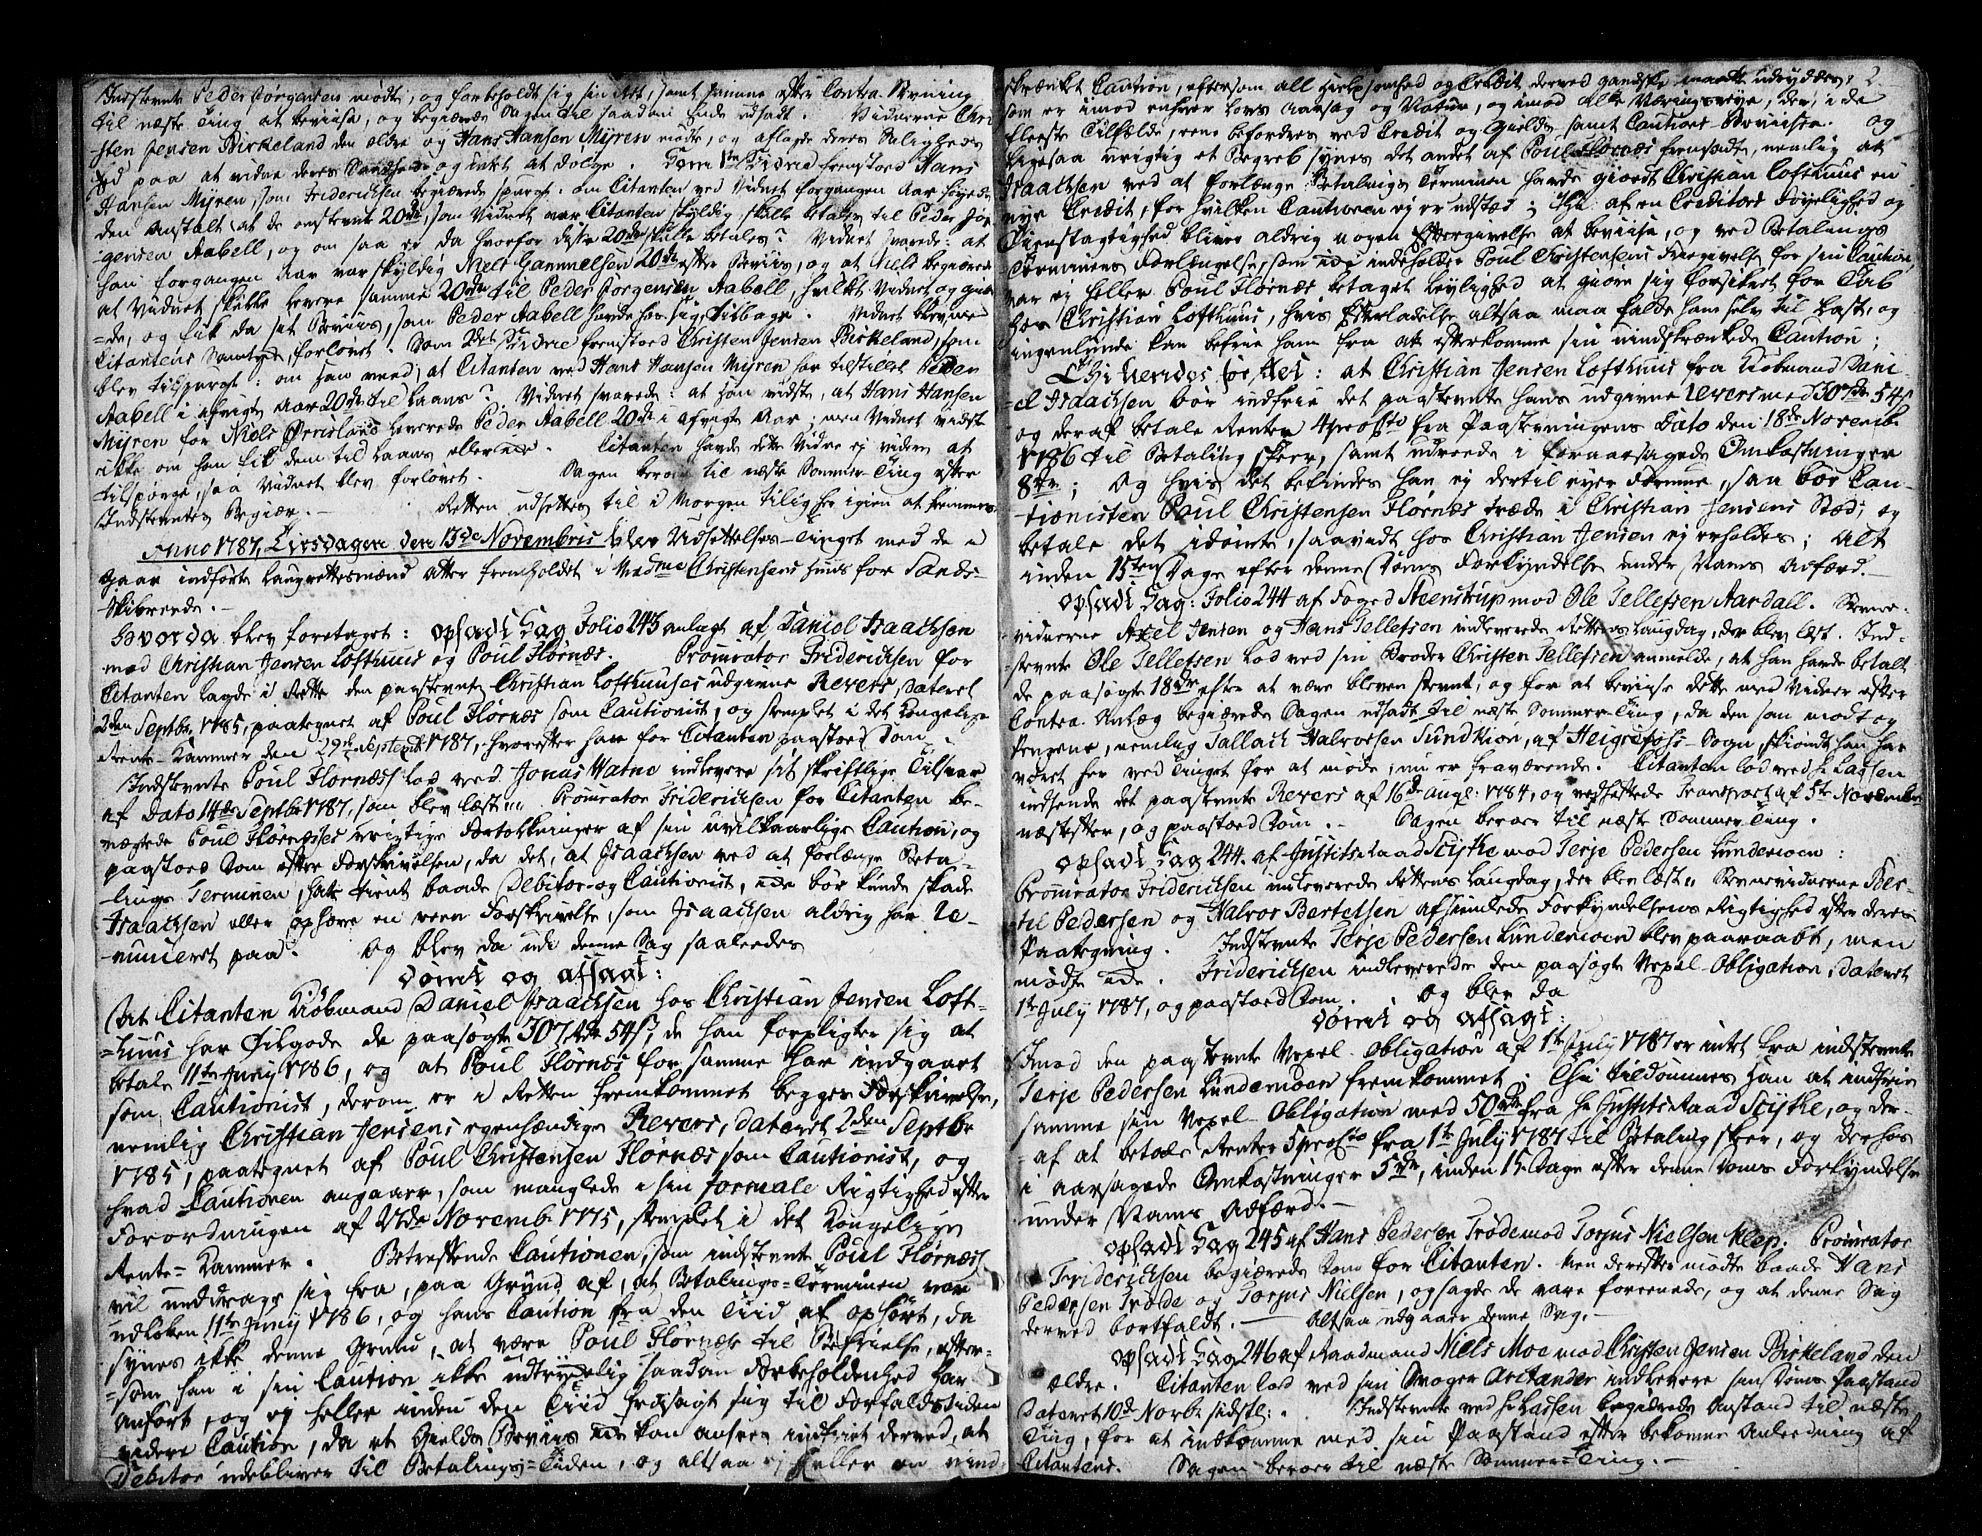 Indstevnte Peder Jørgensen mødte, og forbeholdt sig sin Ret, samt Frimme efter Contra-Stevning
til næste Ting at beviise, og begiærede Sagen til saadan Ende udsadt. Vidnerne Chri-
sten Jensen Birkeland den ældre og Hans Hansen Myren mødte, og aflagde deres Saligheds
Eed paa at vidne deres Sandhed og intet at dølge. Som 1te Vidne fremstoed Hans
Hansen Myren, som Friderichsen begiærede spurgt: om Citanten ved Vidnet forgangen Aar føyede
den Anstalt at de omstevnte 20rdr, som Vidnet var Citanten skyldig, skulle betales til Peder Jør-
gensen Aabell, og om saa er da hvorfor diste 20rdr skulle betales? Vidnet svarede: at
han forgangen Aar var skyldig Niels Gammelsen 20rdr efter Beviis, og at Niels begiærede
at Vidnet skulle levere samme 20rdr til Peder Jørgensen Aabell, hvilket Vidnet og gior-
=de, og fik da sit Beviis, som Peder Aabell havde hos sig, tilbage. Vidnet blev, med
Citantens Samtyke, forløvet. Som 2det Vidne fremstoed Christen Jensen Birkeland, som
blev tilspurgt: om han veed, at Citanten ved Hans Hansen Myren har tilstillet Peder
Aabell i afvigte Aar 20rdr til Laans? Vidnet svarede: at han vidste, at Hans Hansen
Myren for Niels Ørneland leverede Peder Aabell 20rdr i afvigte Aar; men Vidnet vidste
ikke om han fik dem til Laans eller ei. Citanten havde dette Vidne ej videre at
tilspørge, saa Vidnet blev forløvet. Sagen beroer til næste Sommer-Ting efter
Indstevntes Begiær. Retten udsettes til i Morgen tilig her igien at fremmes.
Anno 1787, Tirsdagen den 13de Novembris blev Udsettelses-Tinget med de i
gaar indførte Laugrettesmænd atter fremholdet i Madme Christensens Huus for Sands-
Skibrede.
Hvorda blev foretaget: opsadt Sag Folio 243 anlagt af Daniel Isaachsen
mod Christian Jensen Lofthuus og Poul Hornæs. Procurator Friderichsen for
Citanten lagde i Rette den paastevnte Christian Lofthuuses udgivne Revers, dateret
2den Septbr. 1785, paategnet af Poul Hornæs som Cautionist, og stemplet i det Kongelige
Rente-Kammer den 29de Septembr 1787, hvorefter han for Citanten paastoed Dom.
Indstevnte Poul Hornæs lod ved Jonas Watne indlevere sit skriftlige Tilsvar
af Dato 14de Septbr 1787, som blev læst. Procurator Friderichsen for Citanten be-
nægtede Poul Hornæsses urigtige Fortolkninger af sin uvilkaarlige Caution, og
paastoed Dom efter Forskrivelsen, da det, at Isaachsen ved at forlænge Beta-
lings Terminen, har tient baade Debitor og Cautionist, ei bør kunde skade
Isaachsen eller ophæve en reen Forskrivelse, som Isaachsen aldrig har re-
nuncieret paa. Og blev da udi denne Sag saaledes
dømt og afsagt:
At Citanten Kiøbmand Daniel Isaachsen hos Christian Jensen Loft-
=huus har tilgode de paasøgte 307rdr 54s, de han forpligter sig at
betale 11te Juny 1786, og at Poul Hornæs for samme har indgaaet
som Cautionist, derom er i Retten fremkommet begges Forskrivelse,
nemlig Christian Jensens egenhændige Revers, dateret 2den Septbr
1785, paategnet af Poul Christensen Hornæs som Cautionist, og
hvad Cautionen angaaer, som manglede i sin formale Rigtighed efter
Forordningen af 27de Novemb. 1775, stemplet i det Kongelige
Rente-Kammer. Betreffende Cautionen, som indstevnte Poul Hornæss
vil unddrage sig fra, paa Grund af, at Betalings-Terminen var
udløben 11te Juny 1786, og hans Caution fra den Tiid af ophørt, da
synes ikke denne Grund, at være Poul Hornæs til Befrielse, efter-
=som han i sin Caution ikke udtrykelig saadan Forbeholdenhed har
anført, og ej heller inden den Tiid frasagt sig til Forfaldstiden
videre Caution, da et Gields Beviis ei kan ansees indfriet derved, at
Debitor udebliver til Betalings-Tiden, og altsaa ej heller en uind-
2
skrænket Caution, eftersom all Hielpsomhed og Credit derved gandske maatte udryddes,
som er imod enhver Lovs Aarsag og Natur, og imod alle Næringsveye, der i de
fleeste Tilfælde, eene befordres ved Credit og Gields samt Cautions-Beviiser. Og
ligesaa urigtig et Begreb synes det andet af Poul Hornæs fremsadte, nemlig at
Isaachsen ved at forlænge Betalings Terminen havde giordt Christian Lofthuus en
nye Credit, for hvilken Cautionen ej er udstæd; Thi af en Creditors Føyelighed og
Tienstagtighed bliver aldrig nogen Eftergivelse at beviise, og ved Betalings
Terminens Forlængelse, som ei indeholder Poul Christensens Frigivelse for sin Caution,
var ej heller Poul Hornæs betaget Leylighed at giøre sig forsikret for Tab
hos Christian Lofthuus, hvis Efterladelse altsaa maa falde ham selv til Last, og
ingenlunde kan befrie ham fra at efterkomme sin uindskrænkede Caution;
Thi kiendes for Ret: at Christian Jensen Lofthuus fra Kiøbmand Dani-
el Isaachsen bør indfrie det paastevnte hans udgivne Revers med 307rdr 54s
og deraf betale Renter 4 procto fra Paastevningens Dato den 18de Novemb.
1786 til Betaling skeer, samt udreede i foraarsagede Omkostninger
8rdr; Og hvis det befindes han ej dertil eyer Formue, saa bør Cau-
tionisten Poul Christensen Hornæs træde i Christian Jensens Sted, og
betale det idømte, saavidt hos Christian Jensen ej erholdes; Alt
inden 15ten Dage efter denne Doms Forkyndelse under Nams Adfærd.
opsadt Sag: Folio 244 af Foged Steenstrup mod Ole Tellefsen Aardall. Stevne-
vidnerne Axel Jensen og Hans Tellefsen indleverede Rettens Laugdag, der blev læst. Ind-
stevnte Ole Tellefsen lod ved sin Broder Christen Tellefsen anmelde, at han havde betalt
de paasøgte 18rdr efter at være bleven stevnt, og for at beviise dette med Vidner efter
Contra-Anlæg begiærede Sagen udsadt til næste Sommer-Ting, da den som modtog
Pengene, nemlig Tallach Halvorsen Sundtkiøn, af Heigrefoss-Sogn, skiøndt han har
været her ved Tinget for at møde, nu er fraværende. Citanten lod ved Hr Lassen
indsende det paastevnte Revers af 16de Augs: 1784, og vedheftede Transport af 5te November
næstefter, og paastoed Dom. Sagen beroer til næste Sommer-Ting.
opsadt Sag 244. af Justits-Raad Scÿtke mod Terje Pedersen Lundemoen:
Procurator Friderichsen indleverede Rettens Laugdag, der blev læst. Stevnevidnerne Ber-
til Pedersen og Halvor Bertelsen afhiemlede Forkyndelsens Rigtighed efter deres
Paategning. Indstevnte Terje Pedersen Lundemoen blev paaraabt, men
mødte ei. Friderichsen indleverede den paasøgte Vexel-Obligation, dateret
1te July 1787, og paastoed Dom. Og blev da
dømt og afsagt:
Imod den paastevnte Vexel-Obligation af 1te July 1787 er intet fra indstevnte
Terje Pedersen Lundemoen fremkommet. Thi tildømmes han at indfrie
samme sin Vexel-Obligation med 50rdr fra Hr Justits-Raad Scÿtke, og der-
af at betale Renter 5 procto fra 1te July 1787 til Betaling skeer, og derhos
i aarsagede Omkostninger 5rdr, inden 15 Dage efter denne Doms Forkyndelse
under Nams Adfærd.
opsadt Sag 245 af Hans Pedersen Trøde mod Torjus Nielsen Klep. Procurator
Friderichsen begiærede Dom for Citanten. Men derefter mødte baade Hans
Pedersen Trøde og Torjus Nielsen, og sagde de vare foreenede, og at denne Sag
derved bortfaldt. Altsaa udgaaer denne Sag.
opsadt Sag 246 af Raadmand Niels Moe mod Christen Jensen Birkeland den
ældre. Citanten lod ved sin Svoger Aritander indlevere sin Doms Paastand
dateret 10de Novbr: sidstl: Indstevnte ved Hr Lassen begiærede Anstand til næste
Ting, for at indkomme med sin Paastand efter bekomne Anledning af
Citanten. Sagen beroer til næste Sommer-Ting.